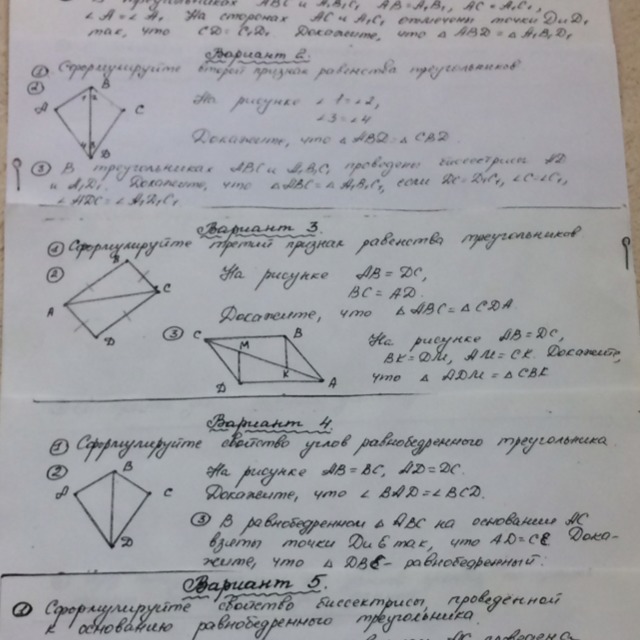 В треугольниках ABC и A₁B₁C₁ AB=A₁B₁, AC=A₁C₁,
∠A=∠A₁. На сторонах AC и A₁C₁ отмечены точки D и D₁
так, что CD=C₁D₁. Докажите, что △ABD=△A₁B₁D₁
Вариант 2.
① Сформулируйте второй признак равенства треугольников.
② B
1 2
A
C
3 4
D
На рисунке ∠1=∠2,
∠3=∠4
Докажите, что △ABD=△CBD.
③ В треугольниках ABC и A₁B₁C₁ проведены биссектрисы AD
и A₁D₁. Докажите, что △ABC=△A₁B₁C₁, если DC=D₁C₁, ∠C=∠C₁,
∠ADC=∠A₁D₁C₁
Вариант 3.
① Сформулируйте третий признак равенства треугольников.
② B
A
C
D
На рисунке AB=DC,
BC=AD.
Докажите, что △ABC=△CDA
③ C
B
M
K
D
A
На рисунке AB=DC,
BK=DM, AM=CK. Докажите,
что △ADM=△CBK
Вариант 4.
① Сформулируйте свойство углов равнобедренного треугольника.
② B
A
C
D
На рисунке AB=BC, AD=DC.
Докажите, что ∠BAD=∠BCD.
③ В равнобедренном △ABC на основании AC
взяты точки D и E так, что AD=CE. Дока-
жите, что △DBE - равнобедренный.
Вариант 5.
① Сформулируйте свойство биссектрисы, проведённой
к основанию равнобедренного треугольника.